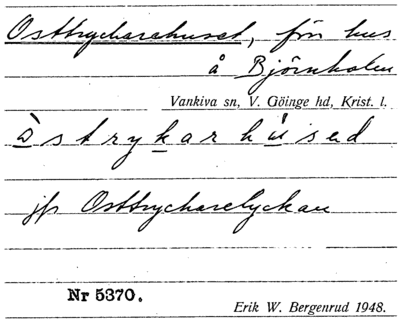 Osttrycharehuset, förr hus
å Björnholen
Vankiva sn, V. Göinge hd, Krist. l.
òstrykarhùsəd
jfr Osttrycharelyckan
Nr 5370.
Erik W. Bergenrud 1948.